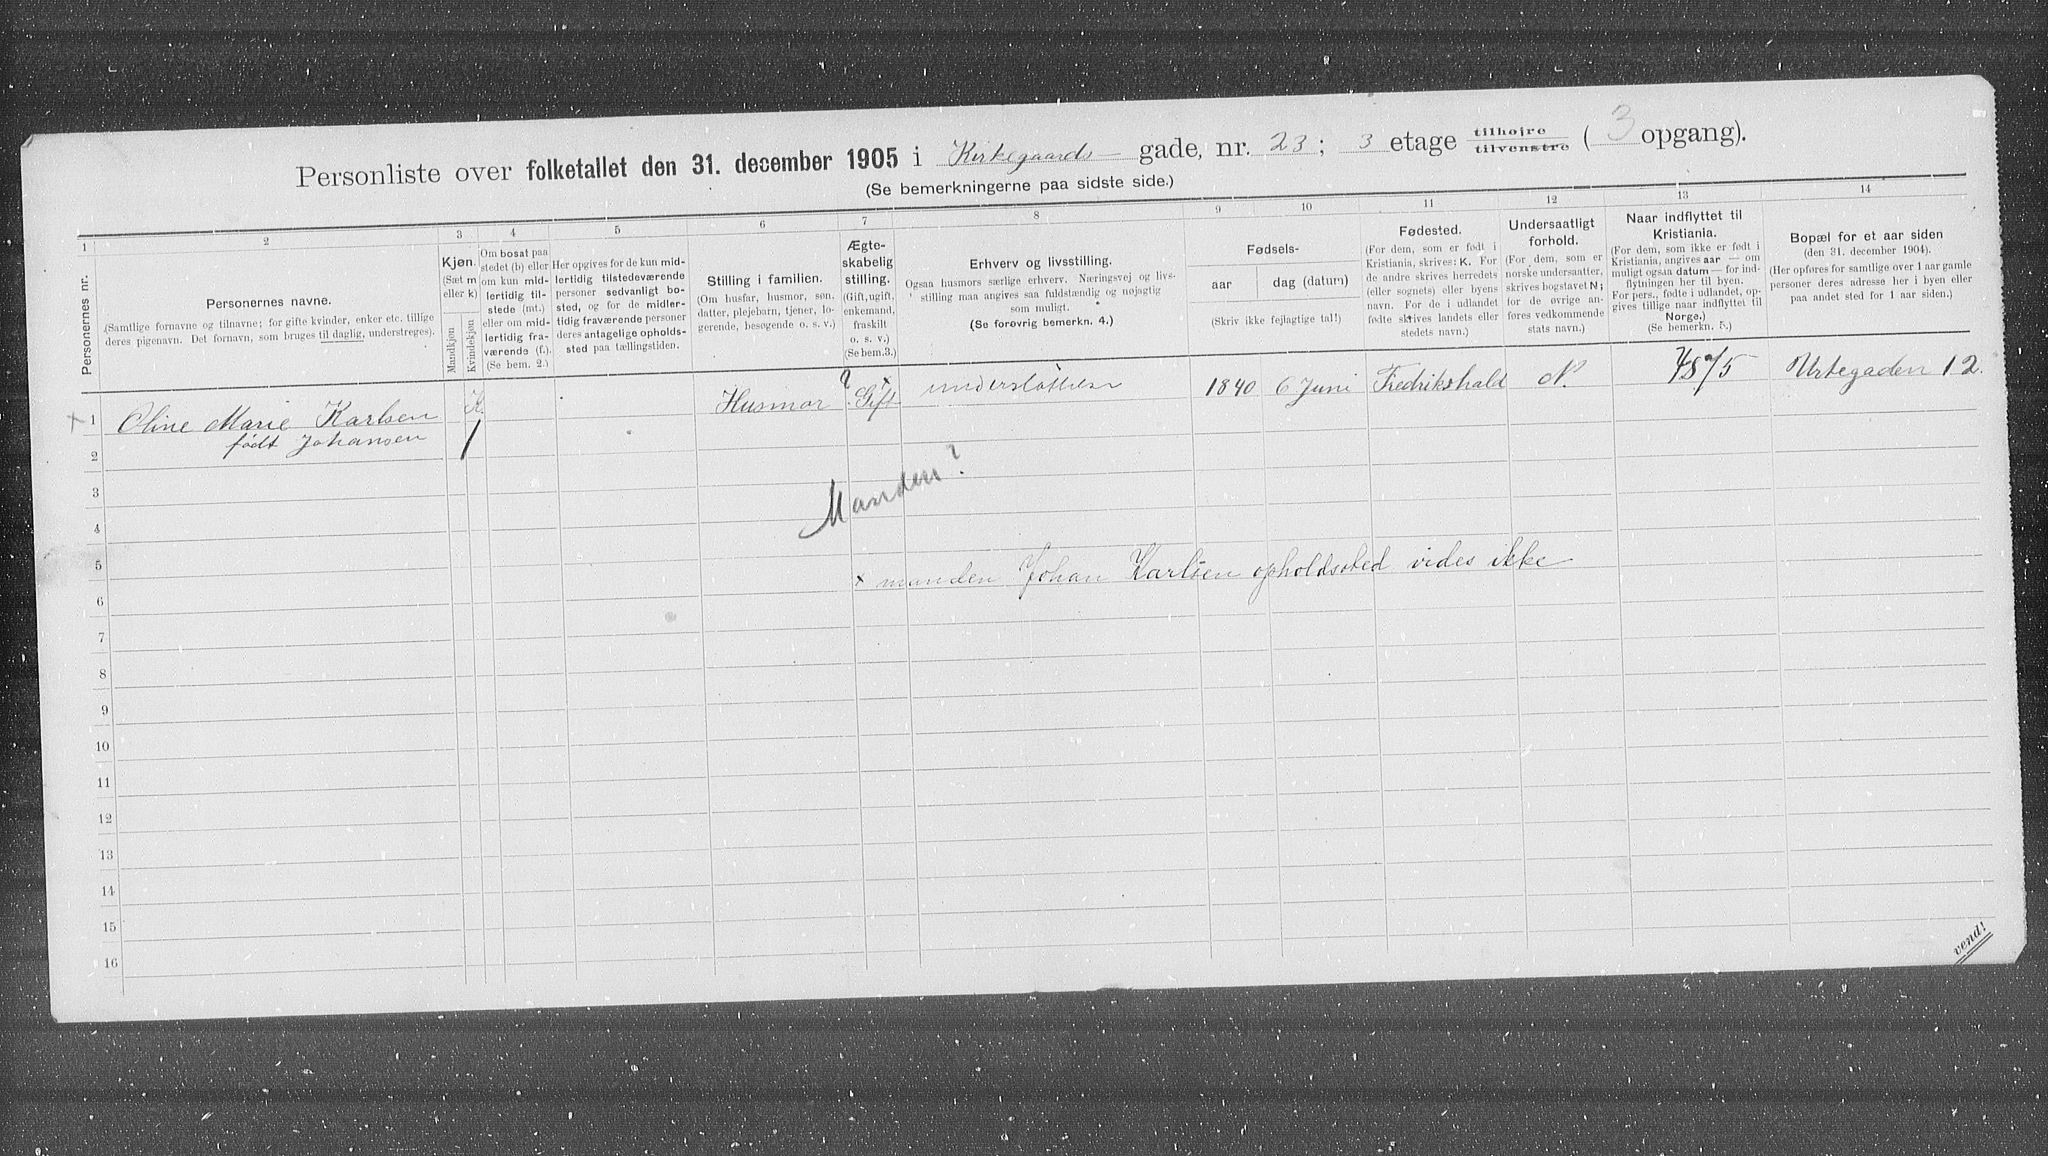 Personliste over folketallet den 31. december 1905 i Kirkegaards- gade, nr. 23; 3 etage tilhøire tilvenstre (3 opgang).
(Se bemerkningerne paa sidste side.)
1 2 3 4 5 6 7 8 9 10 11 12 13 14
Personernes nr.
Personernes navne.
(Samtlige fornavne og tilnavne; for gifte kvinder, enker etc. tillige
deres pigenavn. Det fornavn, som bruges til daglig, understreges).
Kjøn.
(Sæt m
eller k)
Mandkjøn
Kvindekjøn
Om bosat paa
stedet (b) eller
om kun mid-
lertidig til-
stede (mt.)
eller om mid-
lertidig fra-
værende (f.).
(Se bem. 2.)
Her opgives for de kun mid-
lertidig tilstedeværende
personer sedvanligt bo-
sted, og for de midler-
tidig fraværende personer
deres antagelige opholds-
sted paa tællingstiden.
Stilling i familien.
(Om husfar, husmor, søn,
datter, plejebarn, tjener, lo-
gerende, besøgende o. s. v.)
Ægte-
skabelig
stilling.
(Gift, ugift,
enkemand,
fraskilt
o. s. v.)
(Se bem.3.)
Erhverv og livsstilling.
Ogsaa husmors særlige erhverv. Næringsvej og livs-
stilling maa angives saa fuldstændig og nøjagtig
som muligt.
(Se forøvrig bemerkn. 4.)
Fødsels-
aar
dag (datum)
(Skriv ikke fejlagtige tal!)
Fødested.
(For dem, som er født i
Kristiania, skrives: K. For
de andre skrives herredets
(eller sognets) eller byens
navn. For de i udlandet
fødte skrives landets eller
stedets navn.)
Undersaatligt
forhold.
(For dem, som er
norske undersaatter,
skrives bogstavet N;
for de øvrige an-
føres vedkommende
stats navn.)
Naar indflyttet til
Kristiania.
(For dem, som ikke er født i
Kristiania, angives aar — om
muligt ogsaa datum — for ind-
flytningen her til byen.
For pers., fødte i udlandet, op-
gives tillige naar indflyttet til
Norge.)
(Se bemerkn. 5.)
Bopæl for et aar siden
(den 31. december 1904).
(Her opføres for samtlige over 1 aar gamle
personer deres adresse her i byen eller
paa andet sted for 1 aar siden.)
x 1 Oline Marie Karlsen K. Husmor ? Gift x understøttelse 1840 6 Juni Fredrikshald N. Urtegaden 12.
født Johansen 1
2
3
Manden?
4
5
x manden Johan Karlsen opholdssted vides ikke
6
7
8
9
10
11
12
13
14
15
16
vend!